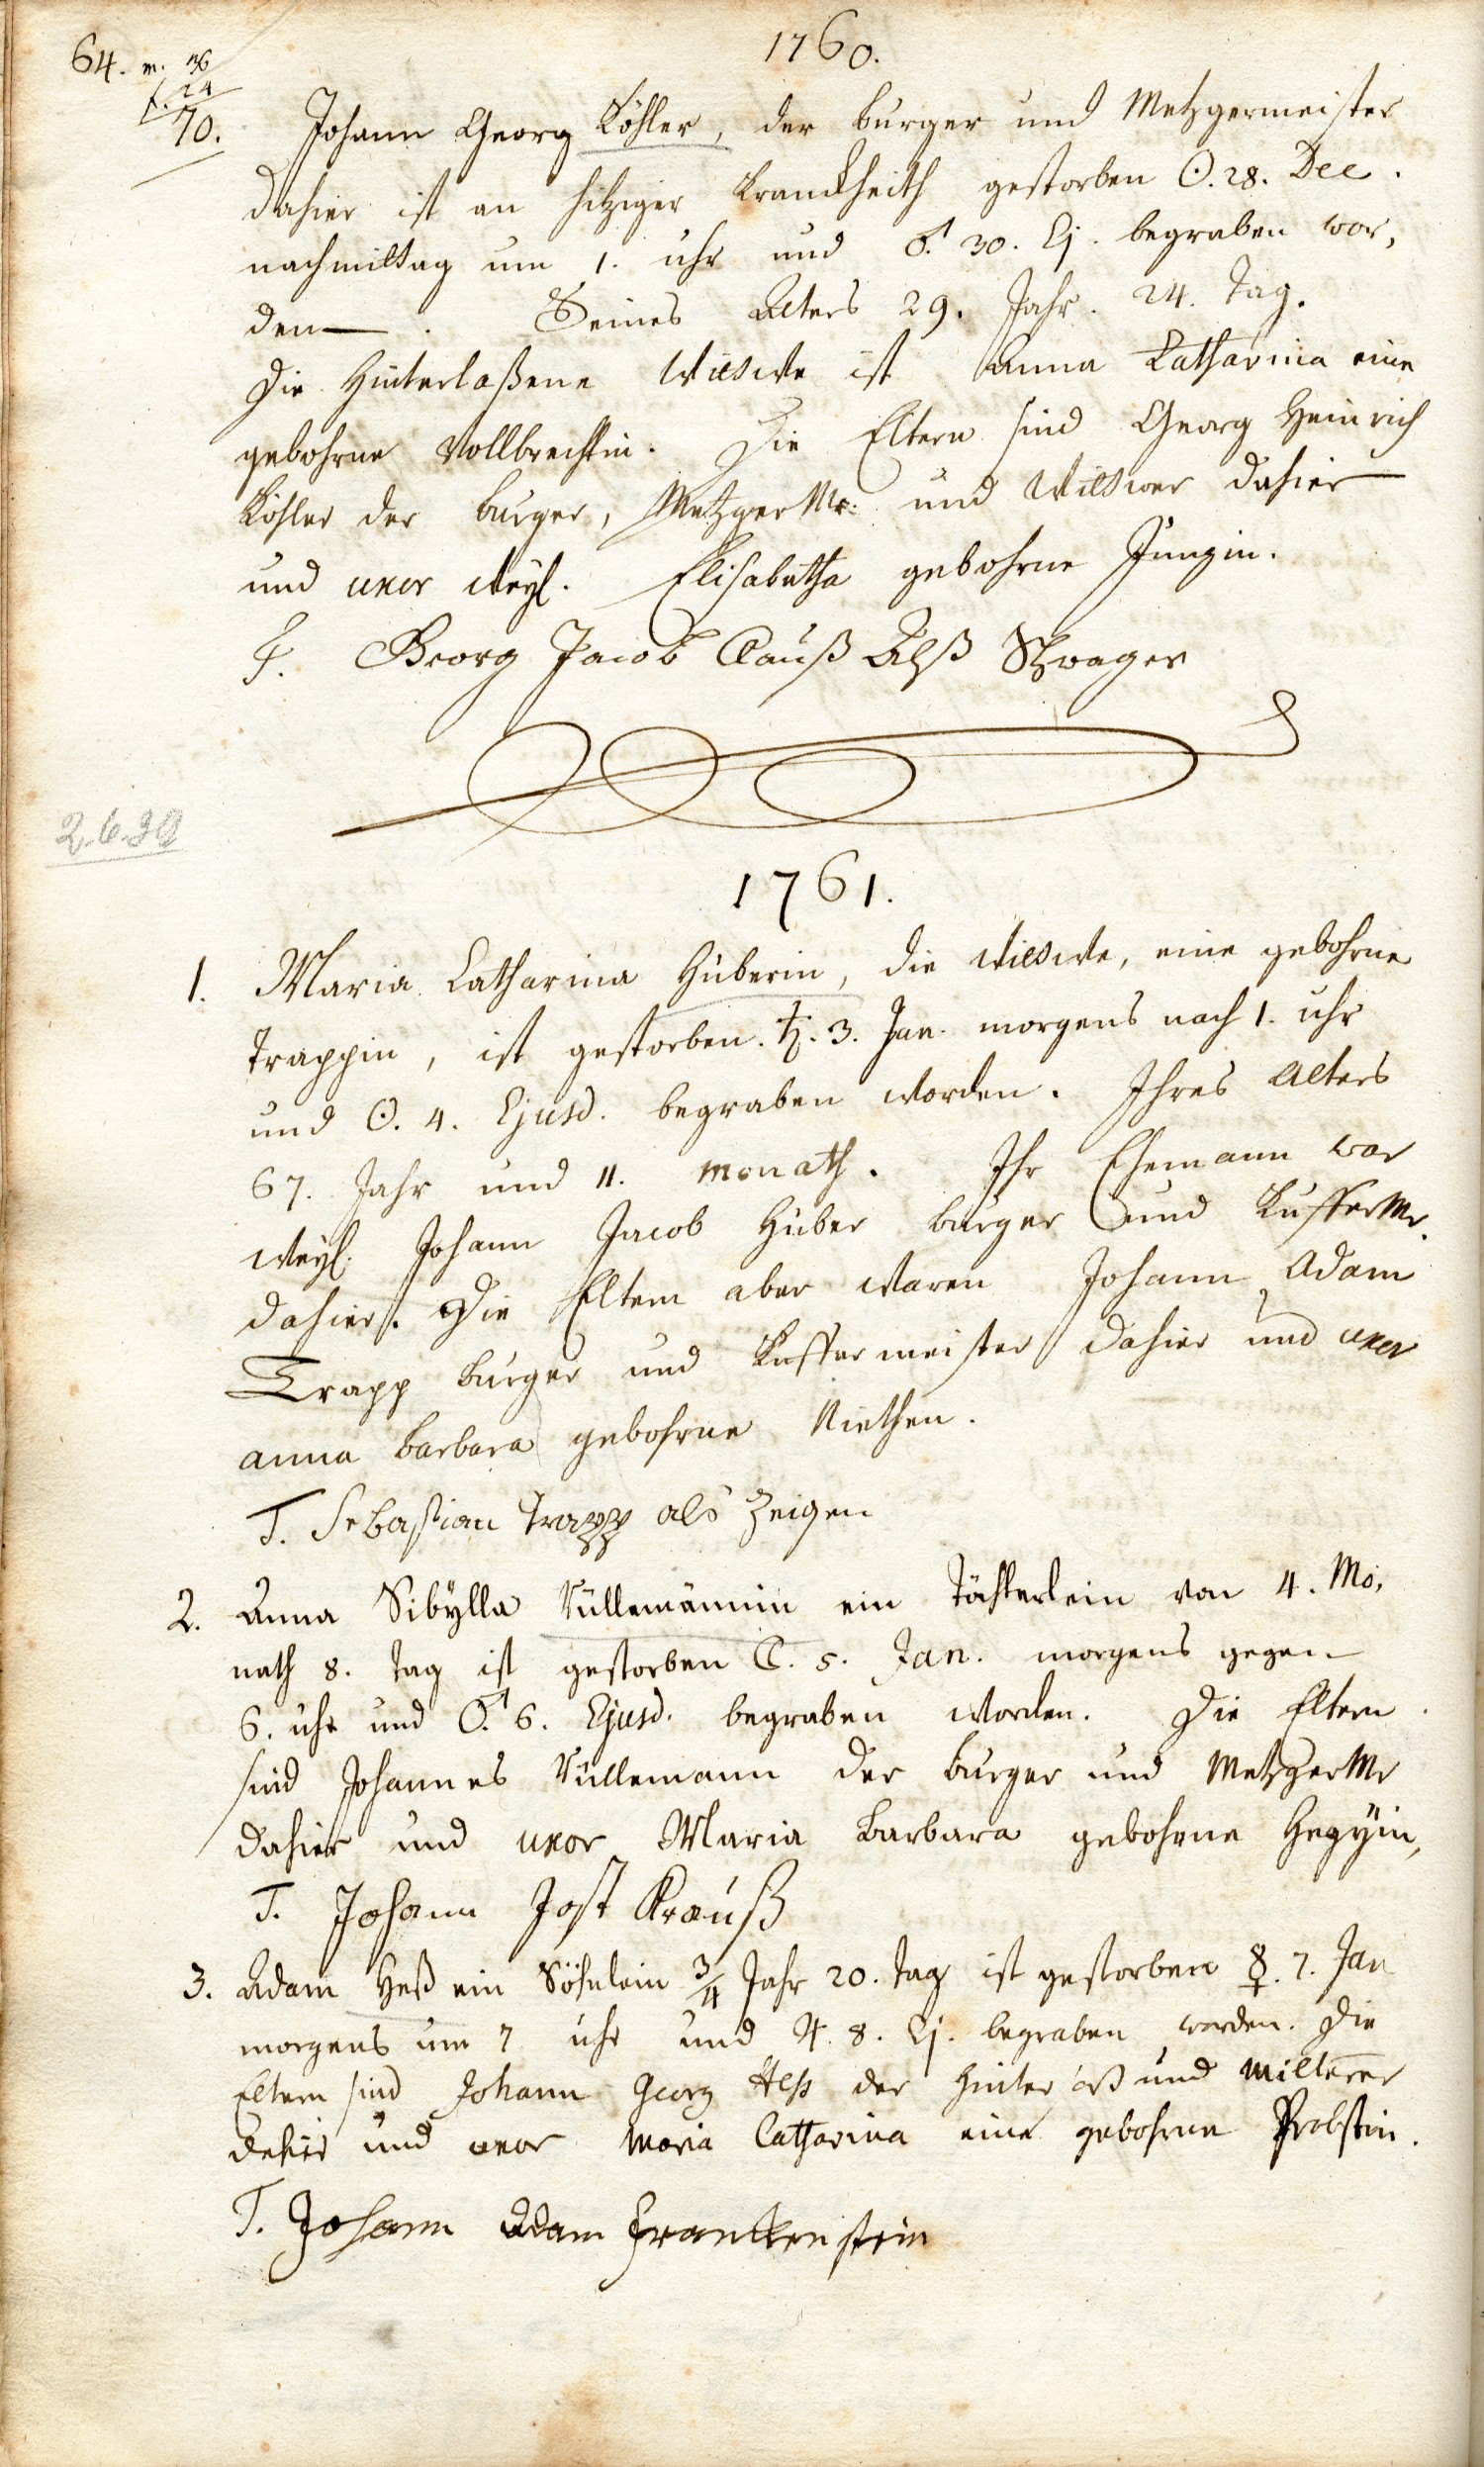 1760.
64. m. 36
f. 24
70. Johann Georg Köhler, der burger und Metzgermeister
dahier ist an hitziger Kranckheith gestorben ☉. 28. Dec.
nachmittag um 1. uhr und ♂. 30. Ej. begraben wor,
den —. Seines Alters 29. Jahr. 24. Tag.
Die Hinterlaßene Wittwe ist Anna Catharina eine
gebohrne Vollbrechtin. Die Eltern sind Georg Heinrich
Köhler der burger, Metzger Mr: und Wittwer dahier
und uxor weyl. Elisabetha gebohrne Jungin.
T. Georg Jacob Clauß Alß Schwager
2.6.39
1761.
1. Maria Catharina Huberin, die Wittwe, eine gebohrne
Trappin, ist gestorben. ♄. 3. Jan. morgens nach 1. uhr
und ☉. 4. Ejusd. begraben worden. Ihres Alters
67. Jahr und 11. Monath. Ihr Ehemann war
weyl. Johann Jacob Huber burger und Kuffer Mr.
dahier. Die Eltern aber waren Johann Adam
Trapp burger und Kuffermeister dahier und uxor
anna barbara gebohrne Niethen.
T. Sebastian Trapp als Zeigen
2. Anna Sibÿlla Vüllemännin ein Töchterlein von 4. Mo,
nath 8. Tag ist gestorben ☾. 5. Jan. morgens gegen
6. uhr und ♂. 6. Ejusd. begraben worden. Die Eltern
sind Johannes Vüllemann der burger und Metzger Mr
dahier und uxor Maria Barbara gebohrne
T. Johann Jost Krauß
3. Adam Heß ein Söhnlein 3/4 Jahr 20. Tag ist gestorben ☿. 7. Jan
morgens um 7 uhr und ♃. 8. Ej. begraben worden. Die
Eltern sind Johann Georg Hess der und
dahier und uxor Maria Catharina eine gebohrne Probstin.
T. Johann Adam Franckenstein